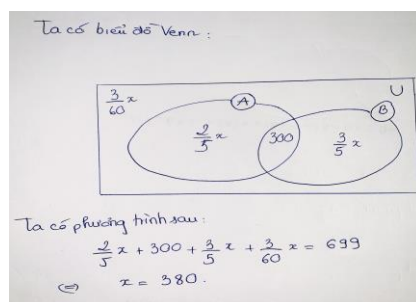 Ta có biểu đồ Venn :
3/60 x
U
A
B
2/5 x
300
3/5 x
Ta có phương trình sau:
2/5 x + 300 + 3/5 x + 3/60 x = 699
⇔ x = 380.